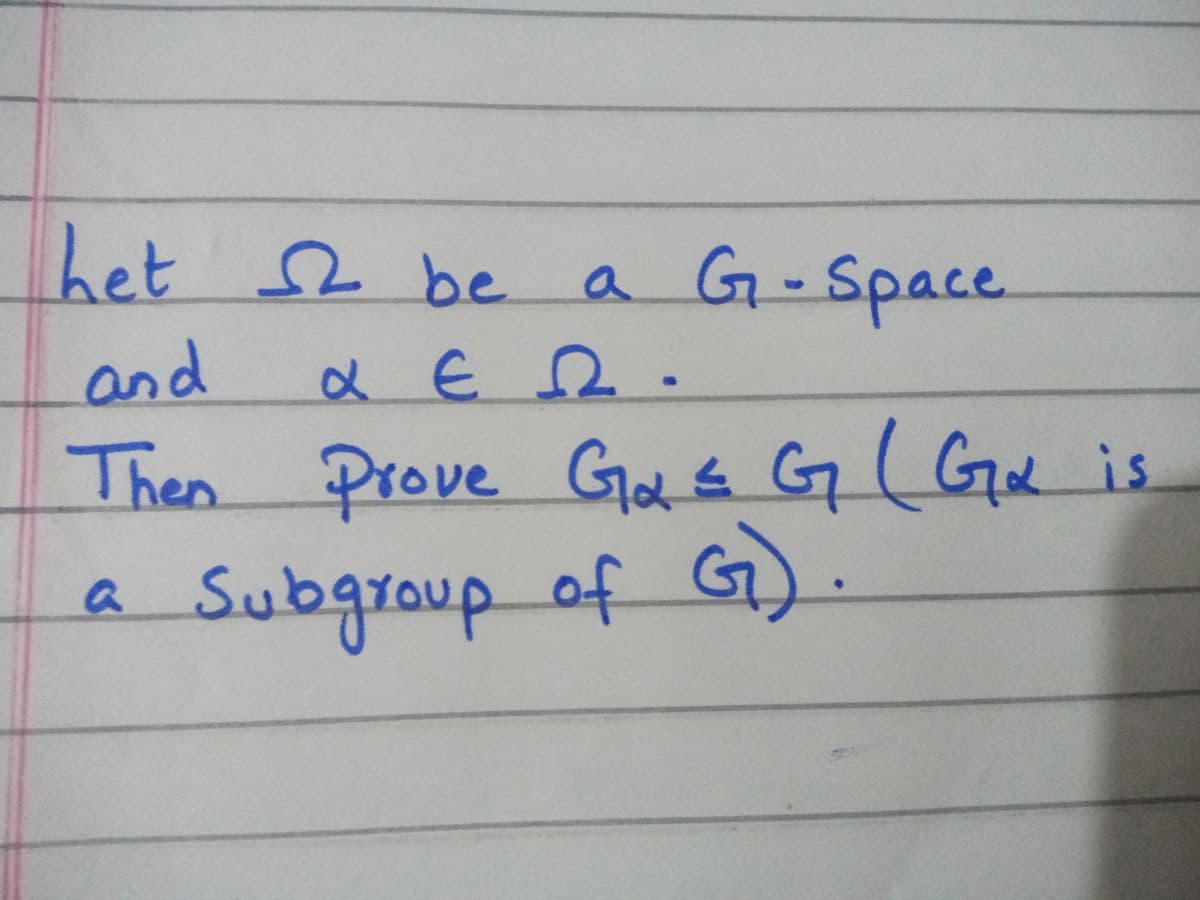 Let Ω be a G-Space
and α ∈ Ω.
Then Prove Gα ≤ G (Gα is
a Subgroup of G).